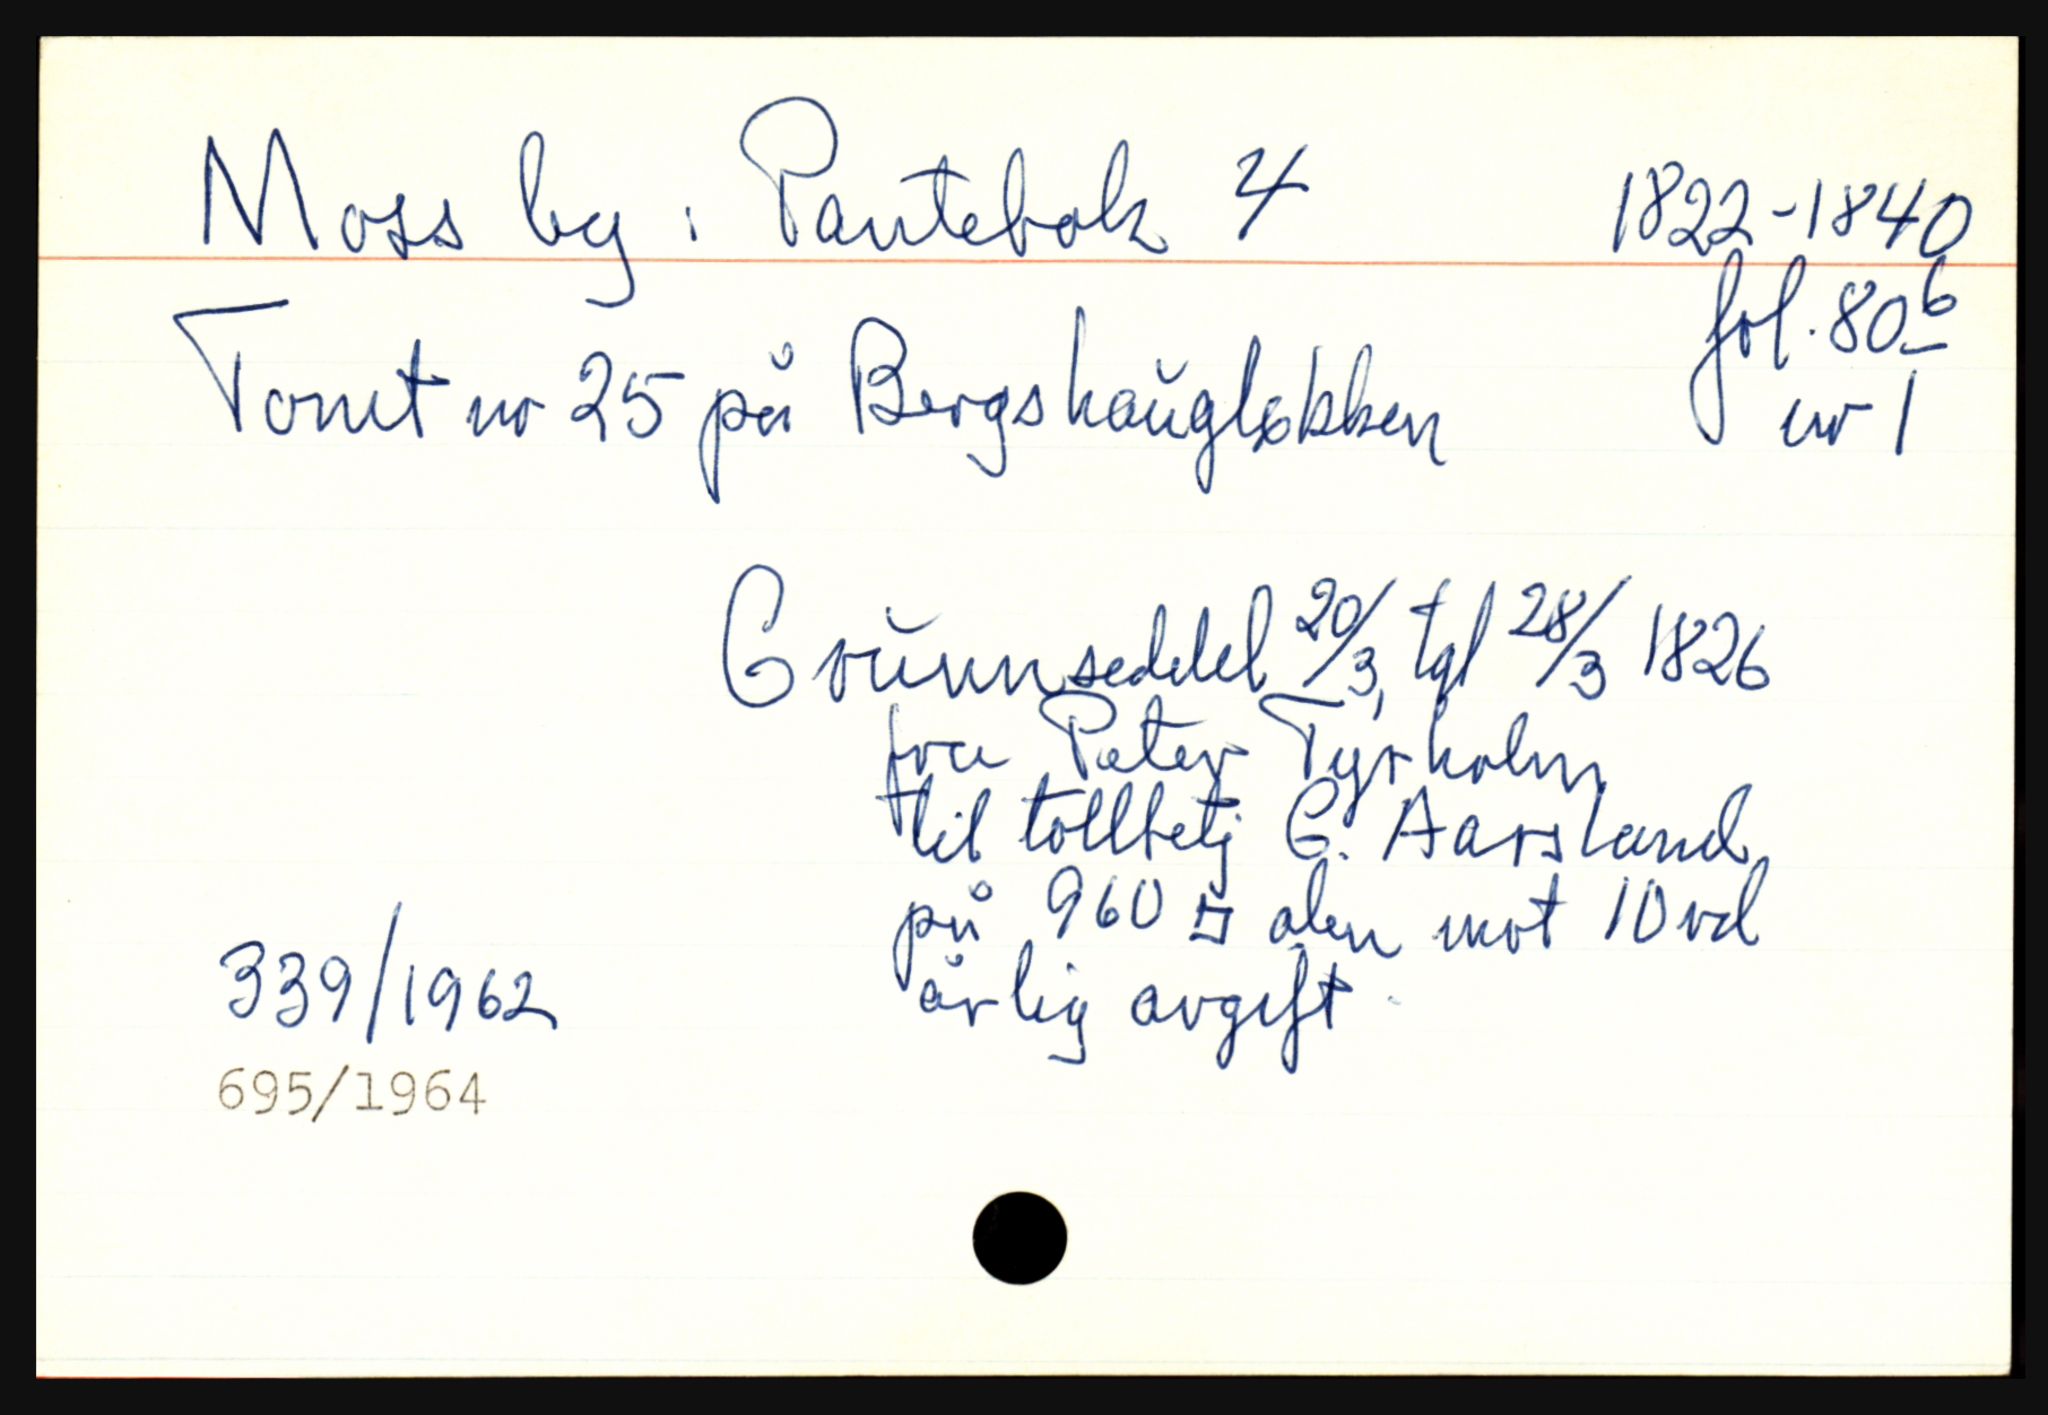 Moss by: Pantebok 4 1822-1840
fol. 80b
Tomt nr 25 på Bergshaugløkken nr 1
Grunnseddel 20/3, tgl 28/3 1826
fra Peter Tyrholm
til tollbetj G. Aarsland
på 960 □ alen mot 10 rd
årlig avgift.
339/1962
695/1964